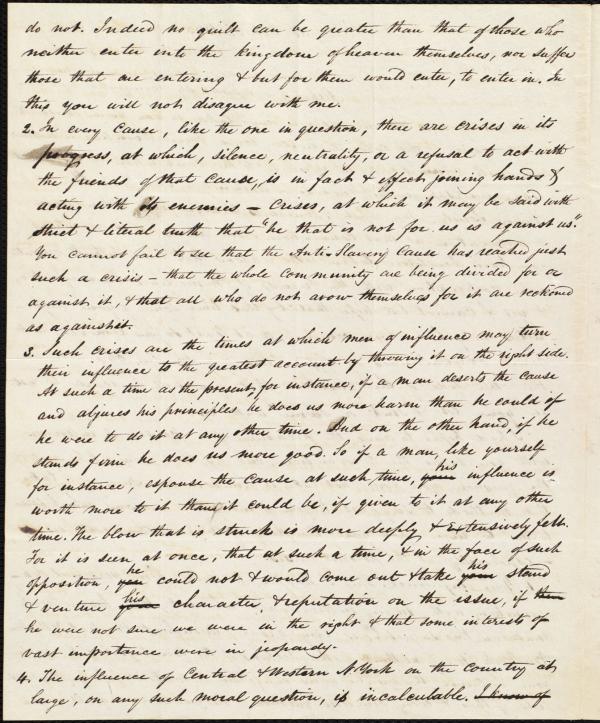 do not. Indeed no guilt can be greater than that of those who
neither enter into the kingdom of heaven themselves, nor suffer
those that are entering & but for them would enter, to enter in. In
this you will not disagree with me.
2. In every cause, like the one in question, there are crises in its
progress, at which, silence, neutrality, or a refusal to act with
the friends of that cause, is in fact & effect joining hands &
acting with its enemies – crises, at which it may be said with
strict & literal truth that "he that is not for us is against us".
You cannot fail to see that the Anti-Slavery cause has reached just
such a crisis – that the whole community are being divided for or
against it, & that all who do not avow themselves for it are reckoned
as against it.
3. Such crises are the times at which men of influence may turn
their influence to the greatest account by throwing it on the right side.
At such a time as the present, for instance, if a man deserts the cause
and abjures his principles he does us more harm than he could if
he were to do it at any other time. And on the other hand, if he
stands firm he does us more good. So if a man, like yourself
for instance, espouse the cause at such time, your his influence is
worth more to it than it could be, if given to it at any other
time. The blow that is struck is more deeply & extensively felt.
For it is seen at once, that at such a time, & in the face of such
opposition, you he could not & would come out & take your his stand
& venture your his character & reputation on the issue, if them
he were not sure we were in the right & that some interests of
vast importance were in jeopardy.
4. The influence of Central & Western N. York on the country at
large, on any such moral question, is incalculable. I know of